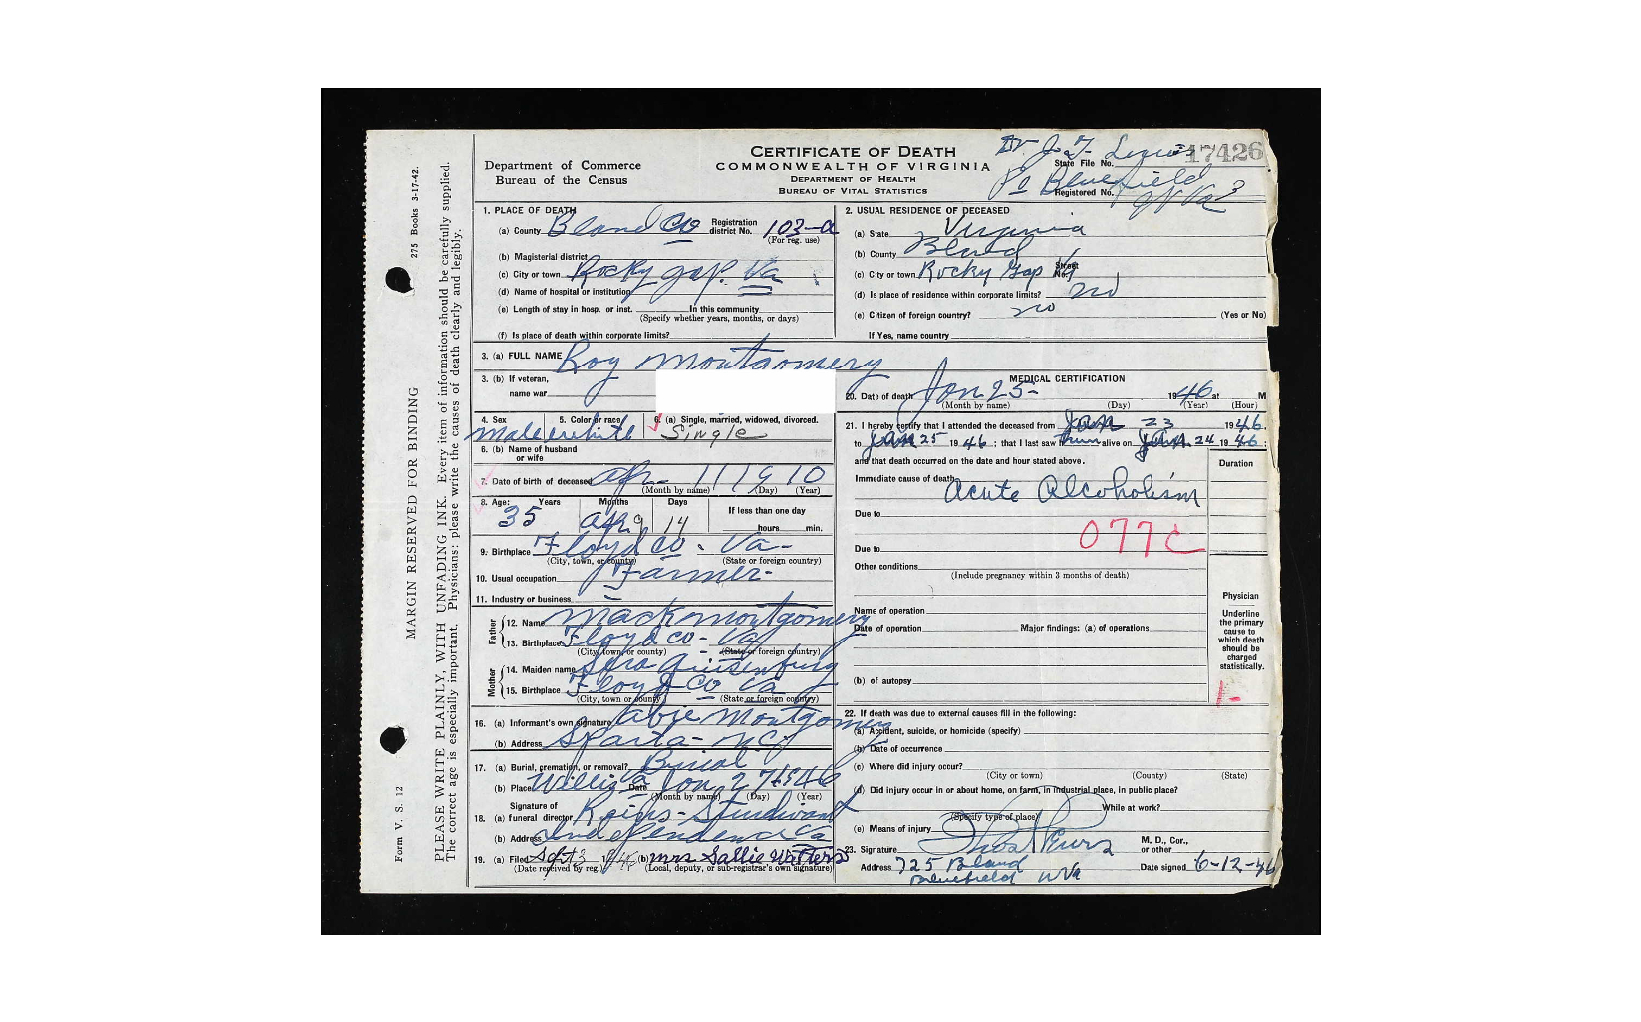 Dr. J. T.
17426
CERTIFICATE OF DEATH
COMMONWEALTH OF VIRGINIA
DEPARTMENT OF HEALTH
BUREAU OF VITAL STATISTICS
Department of Commerce
Bureau of the Census
State File No.
Bluefield
Registered No.
W Va 3
MARGIN RESERVED FOR BINDING
275 Books 3-17-42.
Form V. S. 12
PLEASE WRITE PLAINLY, WITH UNFADING INK. Every item of information should be carefully supplied.
The correct age is especially important. Physicians: please write the causes of death clearly and legibly.
1. PLACE OF DEATH
(a) County Bland Co Registration district No. 103-a
(For reg. use)
(b) Magisterial district
(c) City or town Rocky gap. Va
(d) Name of hospital or institution
(e) Length of stay in hosp. or inst. In this community
(Specify whether years, months, or days)
(f) Is place of death within corporate limits?
2. USUAL RESIDENCE OF DECEASED
(a) State Virginia
(b) County Bland
(c) City or town Rocky Gap Street No.
(d) Is place of residence within corporate limits? no
(e) Citizen of foreign country? no (Yes or No)
If Yes, name country
3. (a) FULL NAME Roy Montgomery
3. (b) If veteran,
name war
4. Sex 5. Color or race 6. (a) Single, married, widowed, divorced.
male white Single
6. (b) Name of husband
or wife
7. Date of birth of deceased apr 11 1910
(Month by name) (Day) (Year)
8. Age: Years Months Days If less than one day
35 9 14
hours min.
9. Birthplace Floyd Co. Va-
(City, town, or county) (State or foreign country)
10. Usual occupation Farmer-
11. Industry or business
Father
12. Name Mack montgomery
13. Birthplace Floyd co- Va
(City, town, or county) (State or foreign country)
Mother
14. Maiden name
15. Birthplace Floyd Co Va
(City, town or county) (State or foreign country)
16. (a) Informant's own signature Montgomery
(b) Address Sparta- N.C.
17. (a) Burial, cremation, or removal? Burial
(b) Place Date Jan 27 1946
(Month by name) (Day) (Year)
Signature of
18. (a) funeral director
(b) Address Independence Va
19. (a) Filed Sept 3 1946 (b) mrs Sallie Walters
(Date received by reg.) (Local, deputy, or sub-registrar's own signature)
MEDICAL CERTIFICATION
20. Date of death Jan 25- 1946 at M
(Month by name) (Day) (Year) (Hour)
21. I hereby certify that I attended the deceased from Jan 23 1946,
to Jan 25 1946; that I last saw him alive on Jan 24 1946;
and that death occurred on the date and hour stated above.
Duration
Immediate cause of death Acute Alcoholism
Due to
077c
Due to
Other conditions
(Include pregnancy within 3 months of death)
Name of operation
Date of operation Major findings: (a) of operations
(b) of autopsy
Physician
Underline
the primary
cause to
which death
should be
charged
statistically.
1-
22. If death was due to external causes fill in the following:
(a) Accident, suicide, or homicide (specify)
(b) Date of occurrence
(c) Where did injury occur?
(City or town) (County) (State)
(d) Did injury occur in or about home, on farm, in industrial place, in public place?
While at work?
(Specify type of place)
(e) Means of injury
23. Signature M. D., Cor., or other
Address 725 Bland Date signed 6-12-46
Bluefield W Va